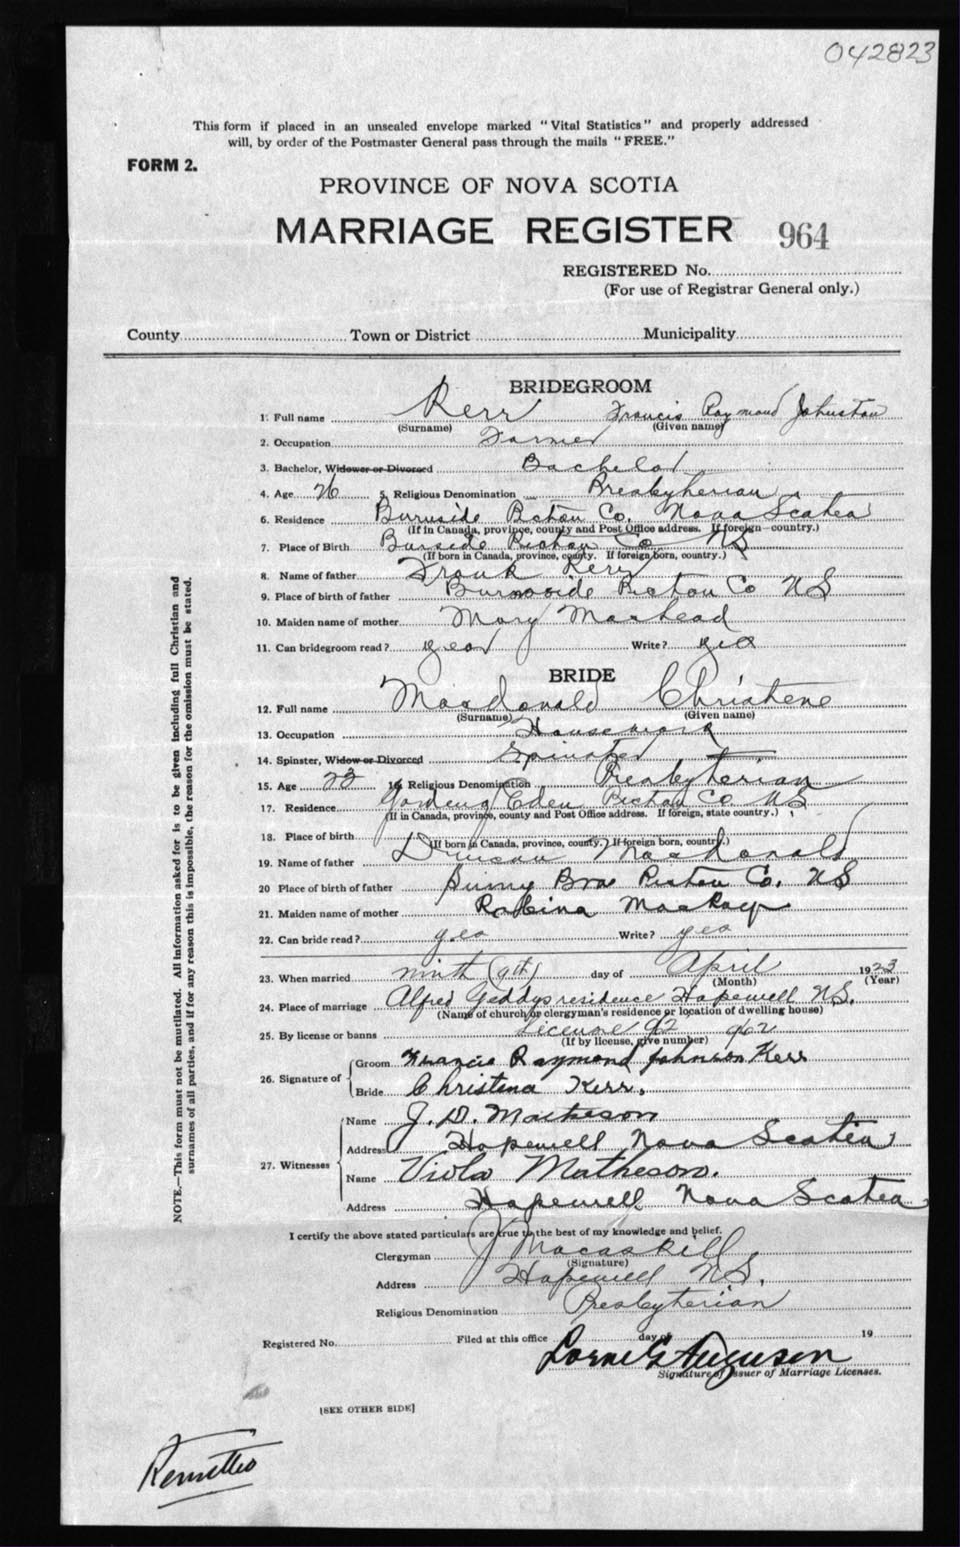 042823
This form if placed in an unsealed envelope marked "Vital Statistics" and properly addressed
will, by order of the Postmaster General pass through the mails "FREE."
FORM 2.
PROVINCE OF NOVA SCOTIA
MARRIAGE REGISTER 964
REGISTERED No.
(For use of Registrar General only.)
County Town or District Municipality
BRIDEGROOM
1. Full name Kerr Francis Raymond Johnston
(Surname) (Given name)
2. Occupation Farmer
3. Bachelor, Widower or Divorced Bachelor
4. Age 26 5. Religious Denomination Presbyterian
6. Residence Burnside Pictou Co. Nova Scotia
(If in Canada, province, county and Post Office address. If foreign—country.)
7. Place of Birth Burnside Pictou Co NS
(If born in Canada, province, county. If foreign born, country.)
8. Name of father Frank Kerr
9. Place of birth of father Burnside Pictou Co NS
10. Maiden name of mother Mary
11. Can bridegroom read? yes Write? yes
BRIDE
12. Full name Macdonald Christene
(Surname) (Given name)
13. Occupation Housework
14. Spinster, Widow or Divorced Spinster
15. Age 16 Religious Denomination Presbyterian
17. Residence Eden Pictou Co. NS
(If in Canada, province, county and Post Office address. If foreign, state country.)
18. Place of birth
(If born in Canada, province, county. If foreign born, country.)
19. Name of father Duncan Macdonald
20 Place of birth of father Sunny Brae Pictou Co. NS
21. Maiden name of mother Robina MacKay
22. Can bride read? yes Write? yes
23. When married ninth (9th) day of April 1923
(Month) (Year)
24. Place of marriage Alfred Geddys residence Hopewell N.S.
(Name of church or clergyman's residence or location of dwelling house)
25. By license or banns License 962
(If by license, give number)
26. Signature of Groom Francis Raymond Johnston Kerr
Bride Christena Kerr.
27. Witnesses Name J. D. Matheson
Address Hopewell Nova Scotia
Name Viola Matheson.
Address Hopewell Nova Scotia
I certify the above stated particulars are true to the best of my knowledge and belief.
Clergyman J Macaskill
(Signature)
Address Hopewell N.S.
Religious Denomination Presbyterian
Registered No. Filed at this office day of 19
Lorne G Ferguson
Signature of Issuer of Marriage Licenses.
[SEE OTHER SIDE]
Remitted
NOTE.—This form must not be mutilated. All information asked for is to be given including full Christian and
surnames of all parties, and if for any reason this is impossible, the reason for the omission must be stated.